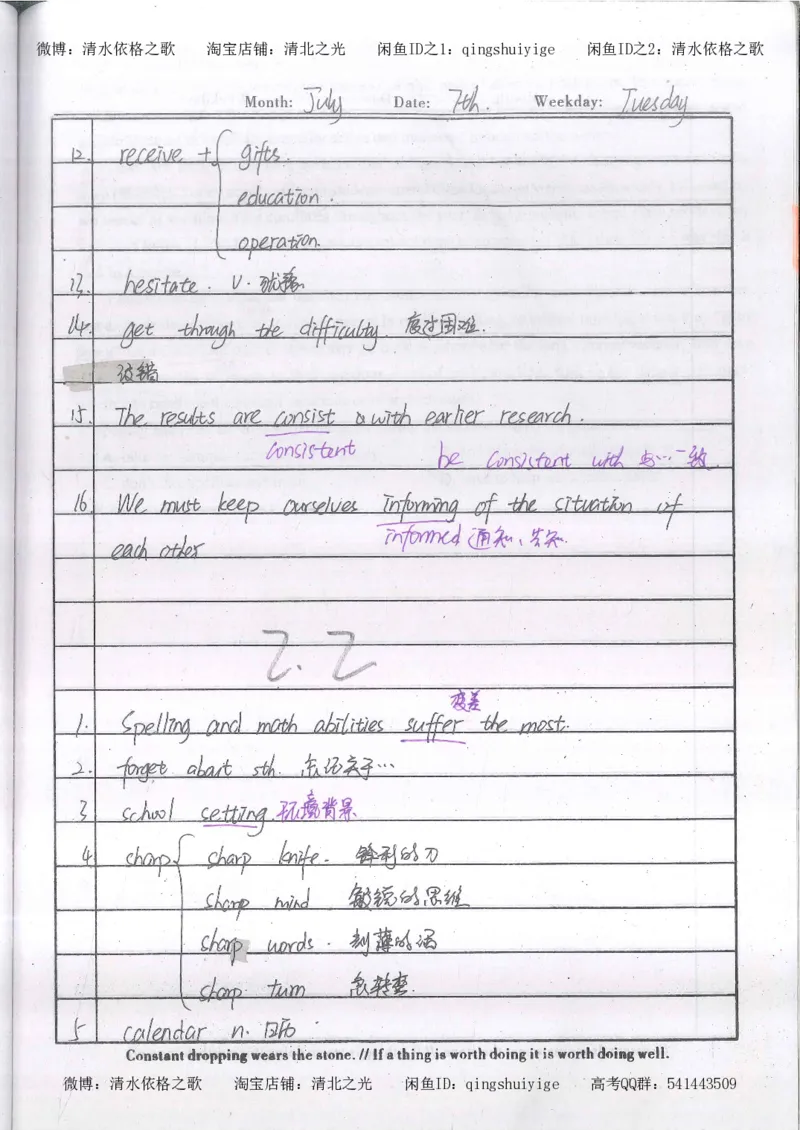 微博：清水依格之歌 淘宝店铺：清北之光 闲鱼ID之1：qingshuiyige 闲鱼ID之2：清水依格之歌
Month: July Date: 7th. Weekday: Tuesday
12. receive + { gifts.
education.
operation.
13. hesitate. v. 犹豫
14. get through the difficulty. 度过困难.
改错
15. The results are consist with earlier research.
consistent be consistent with 与…一致.
16. We must keep ourselves informing of the situation of
informed 通知、告知.
each other
2.2
变差
1. Spelling and math abilities suffer the most.
2. forget about sth. 忘记关于…
3 school setting. 环境背景
4. sharp { sharp knife. 锋利的刀
sharp mind 敏锐的思维
sharp words. 刻薄的话
sharp turn 急转弯.
5 calendar n. 日历
Constant dropping wears the stone. // If a thing is worth doing it is worth doing well.
微博：清水依格之歌 淘宝店铺：清北之光 闲鱼ID：qingshuiyige 高考QQ群：541443509